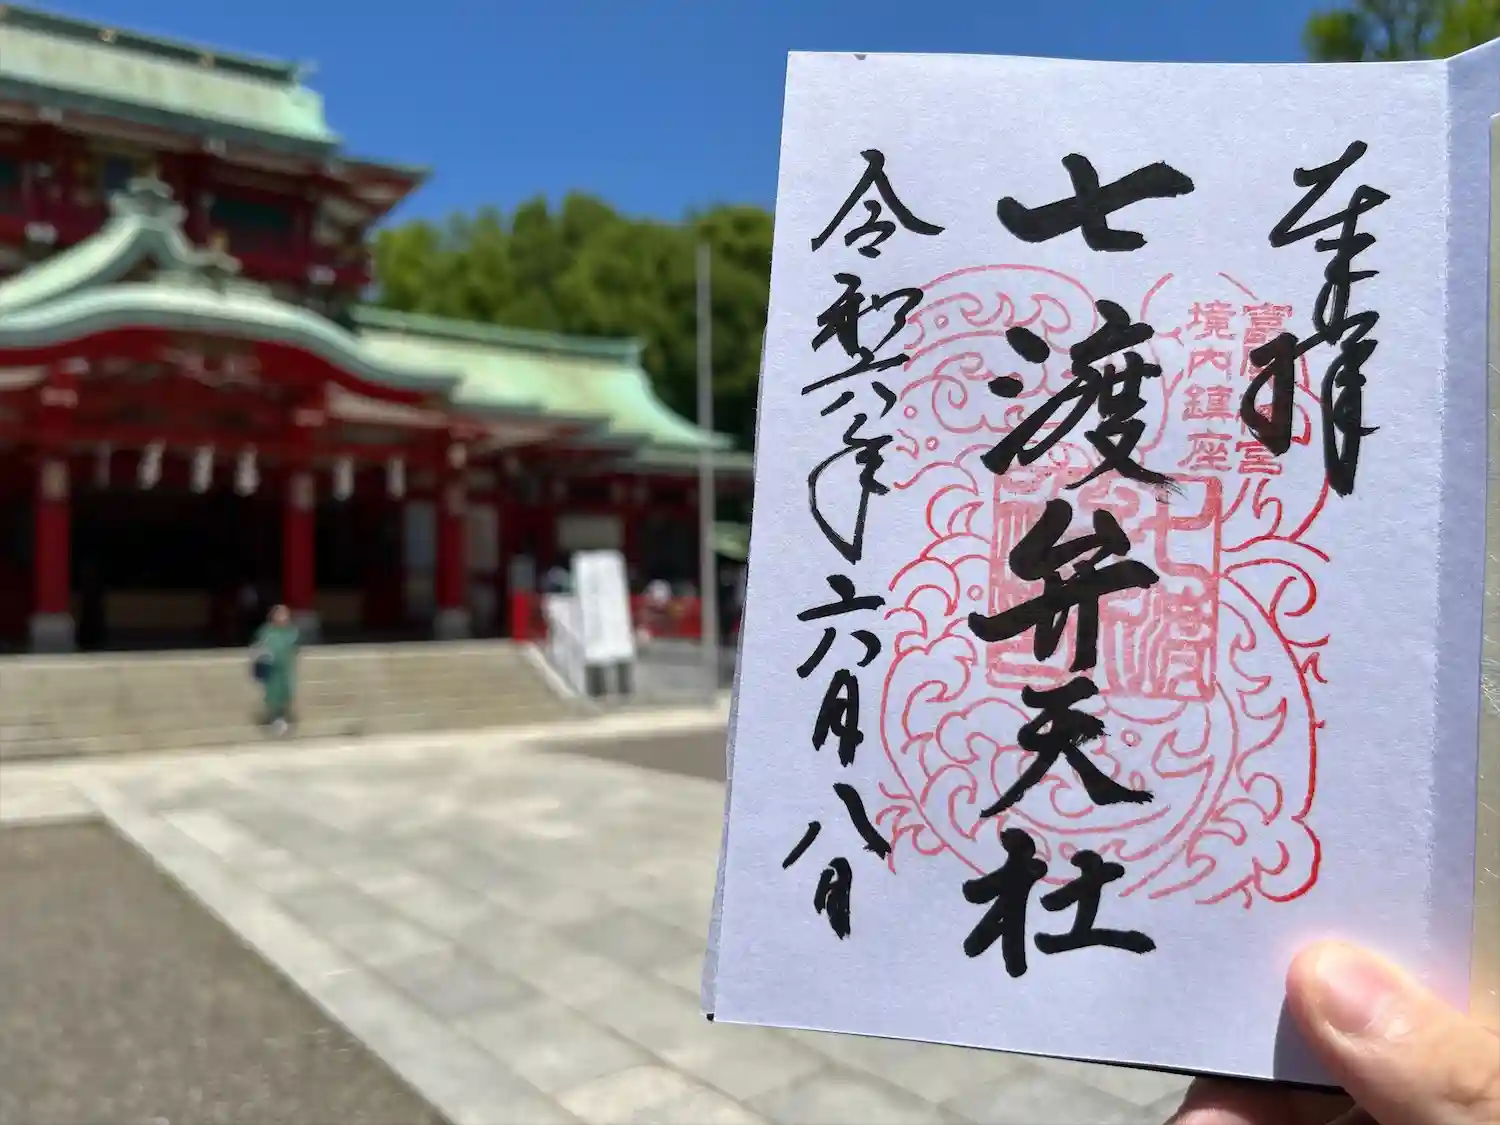 奉拝
富岡八幡宮
境内鎮座
七渡弁天社
令和六年六月八日